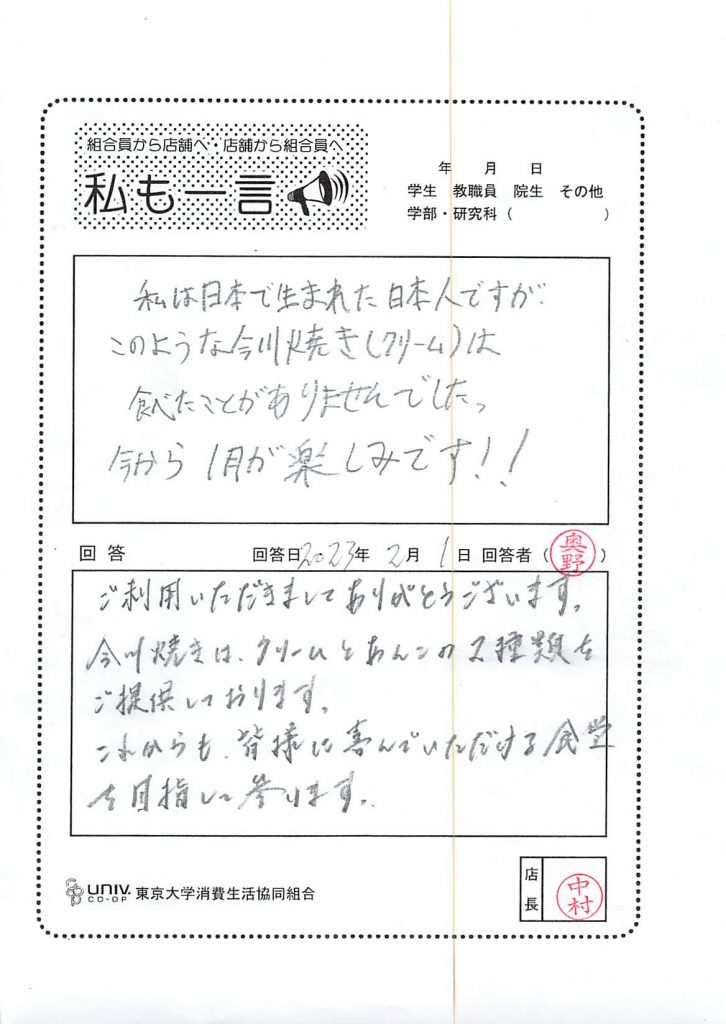 組合員から店舗へ・店舗から組合員へ
私も一言
年 月 日
学生 教職員 院生 その他
学部・研究科（ ）
私は日本で生まれた日本人ですが、
このような今川焼き(クリーム)は
食べたことがありませんでした。
今から1月が楽しみです!!
回答 回答日2023年 2月 1日 回答者（奥野）
ご利用いただきましてありがとうございます。
今川焼きは、クリームとあんこの2種類を
ご提供しております。
これからも、皆様に喜んでいただける食堂
を目指して参ります。
UNIV. CO-OP 東京大学消費生活協同組合
店長 中村